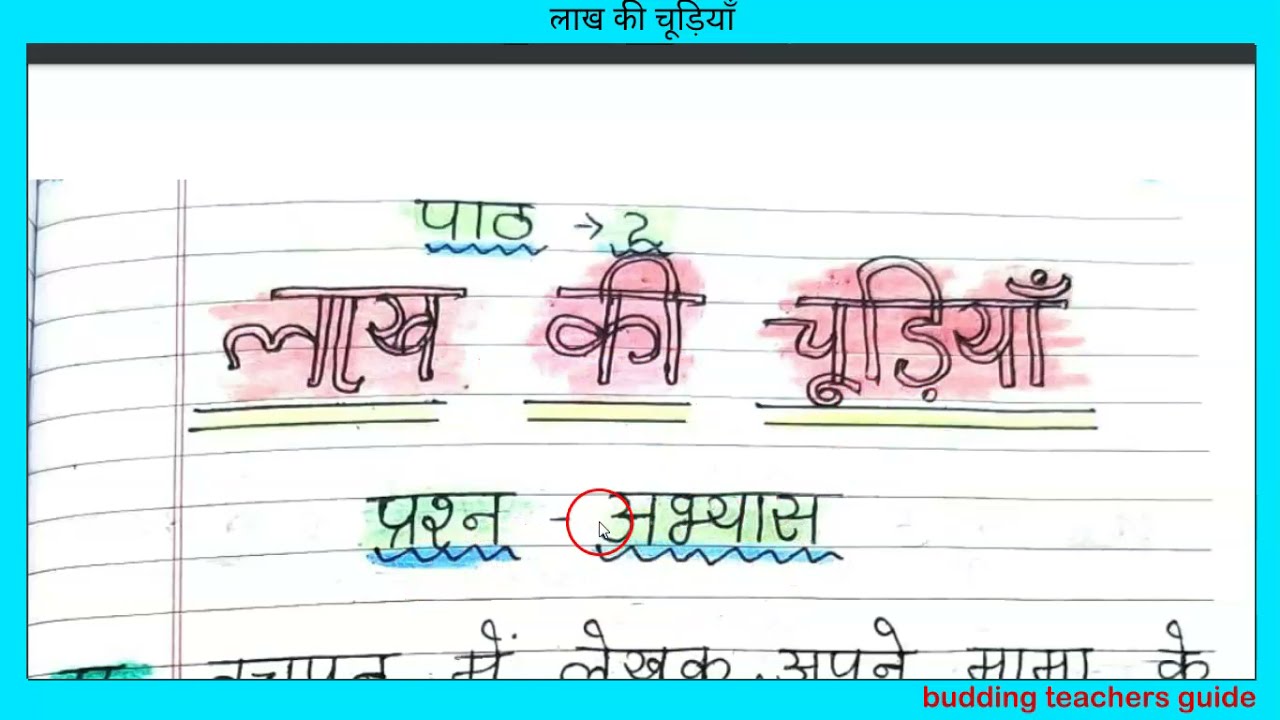 लाख की चूड़ियाँ
पाठ → 2
लाख की चूड़ियाँ
प्रश्न - अभ्यास
बचपन में लेखक अपने मामा के
budding teachers guide